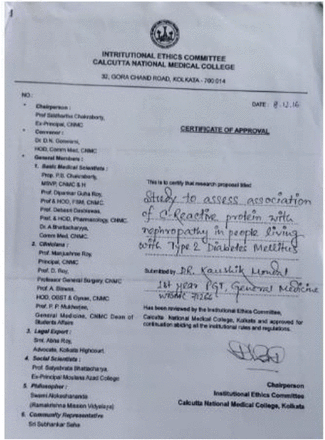 INTRITUTIONAL ETHICS COMMITTEE
CALCUTTA NATIONAL MEDICAL COLLEGE
32, GORA CHAND ROAD, KOLKATA - 700 014
NO.:
DATE: 9.12.16
CERTIFICATE OF APPROVAL
Chairperson :
Prof Siddhartha Chakraborty,
Ex-Principal, CNMC
Convenor :
Dr. D.N. Goswami,
HOD, Comm Med, CNMC
General Members :
1. Basic Medical Scientists :
Prop. P.B. Chakraborty,
MSVP, CNMC & H
Prof. Dipankar Guha Roy,
Prof & HOD, FSM, CNMC.
Prof. Debasri
Prof. & HOD, Pharmacology, CNMC.
Dr. A Bhattacharyya,
Comm Med, CNMC.
2. Clinicians :
Prof. Manjushree Roy
Principal, CNMC
Prof. D. Roy,
Professor General Surgery, CNMC
Prof. A. Biswas,
HOD, OBST & Gynae, CNMC
Prof. P. P. Mukherjee,
General Medicine, CNMC Dean of
Students Affairs
3. Legal Expert :
Smt. Abha Roy,
Advocate, Kolkata Highcourt.
4. Social Scientists :
Prof. Satyabrata Bhattacharya,
Ex-Principal Moulana Azad College
5. Philosopher :
Swami Alokeshananda
(Ramakrishna Mission Vidyalaya)
6. Community Representative
Sri Subhankar Saha
This is to certify that research proposal titled
Study to assess association
of C-Reactive protein with
nephropathy in people living
with Type 2 Diabetes Mellitus
Submitted by DR. Kaushik Mondal
1st year PGT, General Medicine
Has been reviewed by the Institutional Ethics Committee,
Calcutta National Medical College, Kolkata and approved for
continuation abiding all the institutional rules and regulations.
Chairperson
Institutional Ethics Committee
Calcutta National Medical College, Kolkata